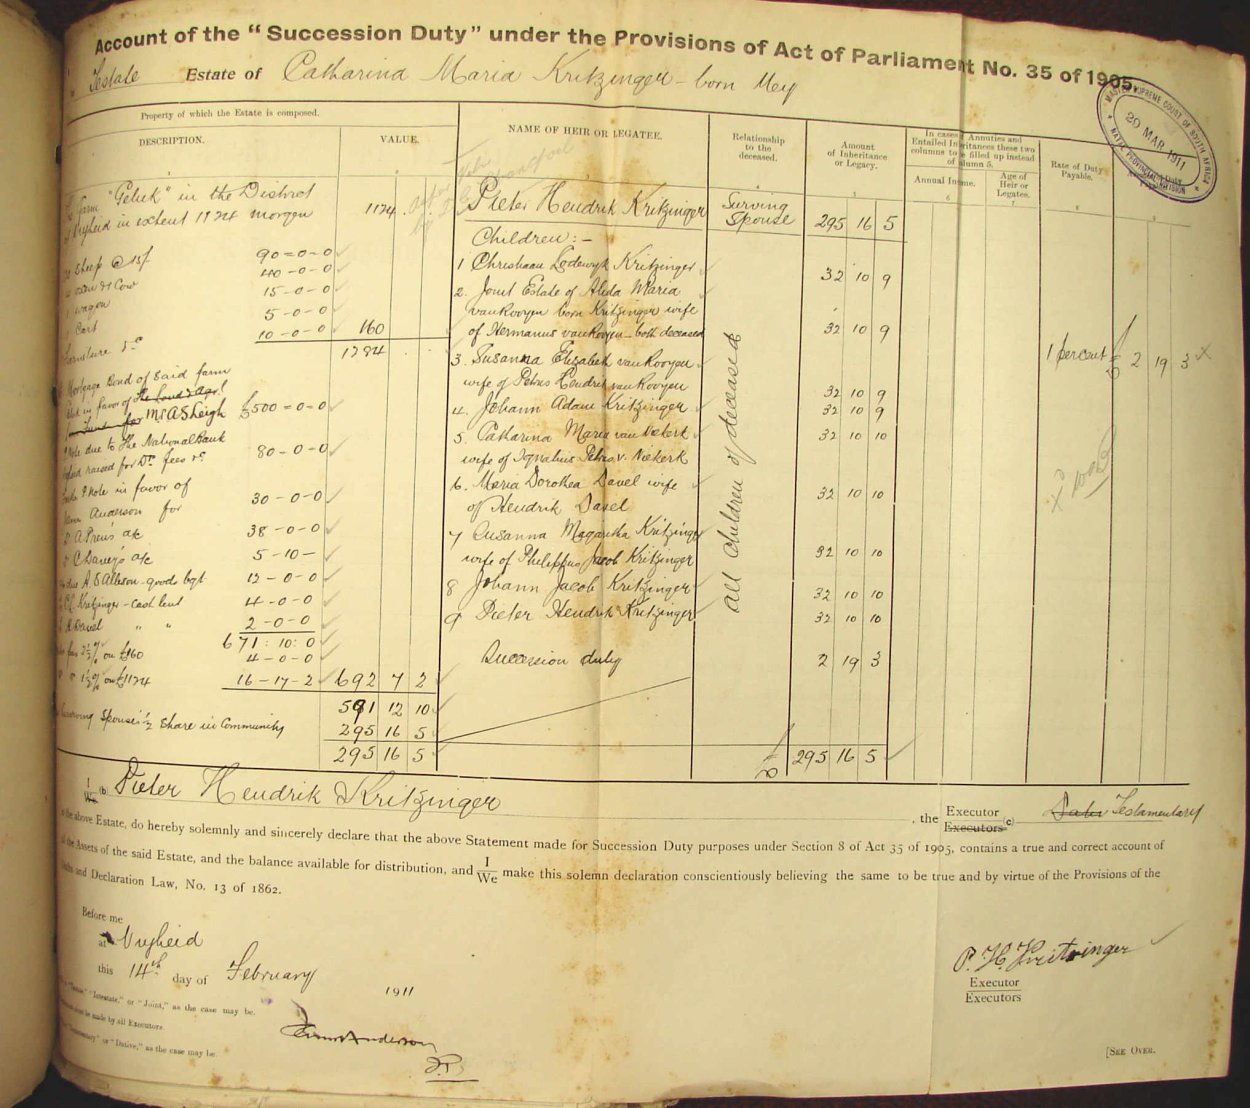 Account of the "Succession Duty" under the Provisions of Act of Parliament No. 35 of 1905.
Testate Estate of Catharina Maria Kritzinger - born Mey
MASTER SUPREME COURT OF SOUTH AFRICA
20 MAR 1911
NATAL PROVINCIAL DIVISION
Property of which the Estate is composed.
DESCRIPTION. VALUE.
NAME OF HEIR OR LEGATEE.
Relationship to the deceased.
Amount of Inheritance or Legacy.
In cases Annuities and
Entailed Inheritances these two
columns to be filled up instead
of column 5.
Annual Income. Age of Heir or Legatee.
Rate of Duty Payable.
farm "Geluk" in the District
Vryheid in extent 1124 morgen 1124
Sheep @ 15/ 90=0=0
oxen & 1 Cow 40-0-0
wagon 15-0-0
Cart 5-0-0
Furniture 10-0-0 160
1284
Mortgage Bond of said farm
in favor of the Land & Agrl
Fund for Mr A S Leigh £500=0=0
Note due to the National Bank
raised for Dr. fees 80-0-0
Note in favor of
Anderson for 30-0-0
A Preus a/c 38-0-0
C Davey's a/c 5-10-
A. S Allison - goods bgt 12-0-0
Kritzinger - cash lent 4-0-0
Davel " " 2-0-0
671:10:0
2½% on £160 4-0-0
1½% on £1124 16-17-2 692 7 2
591 12 10
Surviving Spouse's ½ Share in Community 295 16 5
295 16 5
Pieter Hendrik Kritzinger Surving Spouse 295 16 5
Children:-
1 Christiaan Lodewyk Kritzinger 32 10 9
2. Joint Estate of Aleda Maria
van Rooyen born Kritzinger wife
of Hermanus van Rooyen - both deceased 32 10 9
3. Susanna Elizabeth van Rooyen
wife of Petrus Hendrik van Rooyen 32 10 9
4. Johann Adam Kritzinger 32 10 9
5. Catharina Maria van Niekerk 32 10 10
wife of Ignatius Petrus v. Niekerk
6. Maria Dorothea Davel wife
of Hendrik Davel 32 10 10
7 Susanna Magaretha Kritzinger
wife of Philippus Jacob Kritzinger 32 10 10
8 Johann Jacob Kritzinger 32 10 10
9 Pieter Hendrik Kritzinger 32 10 10
all children of deceased
Succession duty 2 19 3
£ 295 16 5
1 percent £ 2 19 3 x
I
We (b) Pieter Hendrik Kritzinger, the Executor
Executors (c) Dativ Testamentary
the above Estate, do hereby solemnly and sincerely declare that the above Statement made for Succession Duty purposes under Section 8 of Act 35 of 1905, contains a true and correct account of
the Assets of the said Estate, and the balance available for distribution, and I/We make this solemn declaration conscientiously believing the same to be true and by virtue of the Provisions of the
Oaths and Declaration Law, No. 13 of 1862.
Before me
at Vryheid
this 14th day of February 1911
"Testate," "Intestate," or "Joint," as the case may be.
must be made by all Executors.
"Testamentary" or "Dative," as the case may be.
Anderson
J.P.
P. H. Kritzinger
Executor
Executors
[SEE OVER.